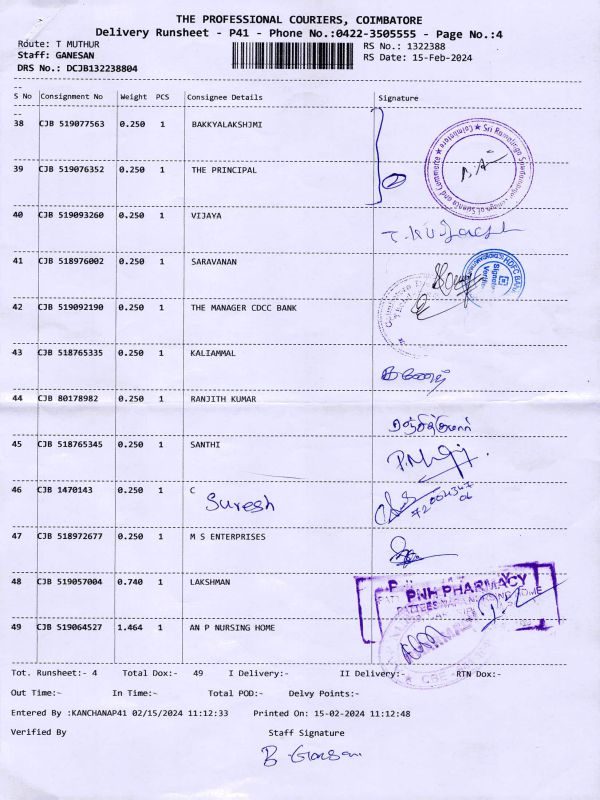 THE PROFESSIONAL COURIERS, COIMBATORE
Delivery Runsheet - P41 - Phone No.:0422-3505555 - Page No.:4
Route: T MUTHUR RS No.: 1322388
Staff: GANESAN RS Date: 15-Feb-2024
DRS No.: DCJB132238804
S No Consignment No Weight PCS Consignee Details Signature
38 CJB 519077563 0.250 1 BAKKYALAKSHJMI
39 CJB 519076352 0.250 1 THE PRINCIPAL
40 CJB 519093260 0.250 1 VIJAYA
41 CJB 518976002 0.250 1 SARAVANAN
HDFC BANK
42 CJB 519092190 0.250 1 THE MANAGER CDCC BANK
43 CJB 518765335 0.250 1 KALIAMMAL
44 CJB 80178982 0.250 1 RANJITH KUMAR
ரஞ்சித்குமார்
45 CJB 518765345 0.250 1 SANTHI
46 CJB 1470143 0.250 1 C
Suresh
47 CJB 518972677 0.250 1 M S ENTERPRISES
48 CJB 519057004 0.740 1 LAKSHMAN
PNH PHARMACY
49 CJB 519064527 1.464 1 AN P NURSING HOME
Tot. Runsheet:- 4 Total Dox:- 49 I Delivery:- II Delivery:- RTN Dox:-
Out Time:- In Time:- Total POD:- Delvy Points:-
Entered By :KANCHANAP41 02/15/2024 11:12:33 Printed On: 15-02-2024 11:12:48
Verified By Staff Signature